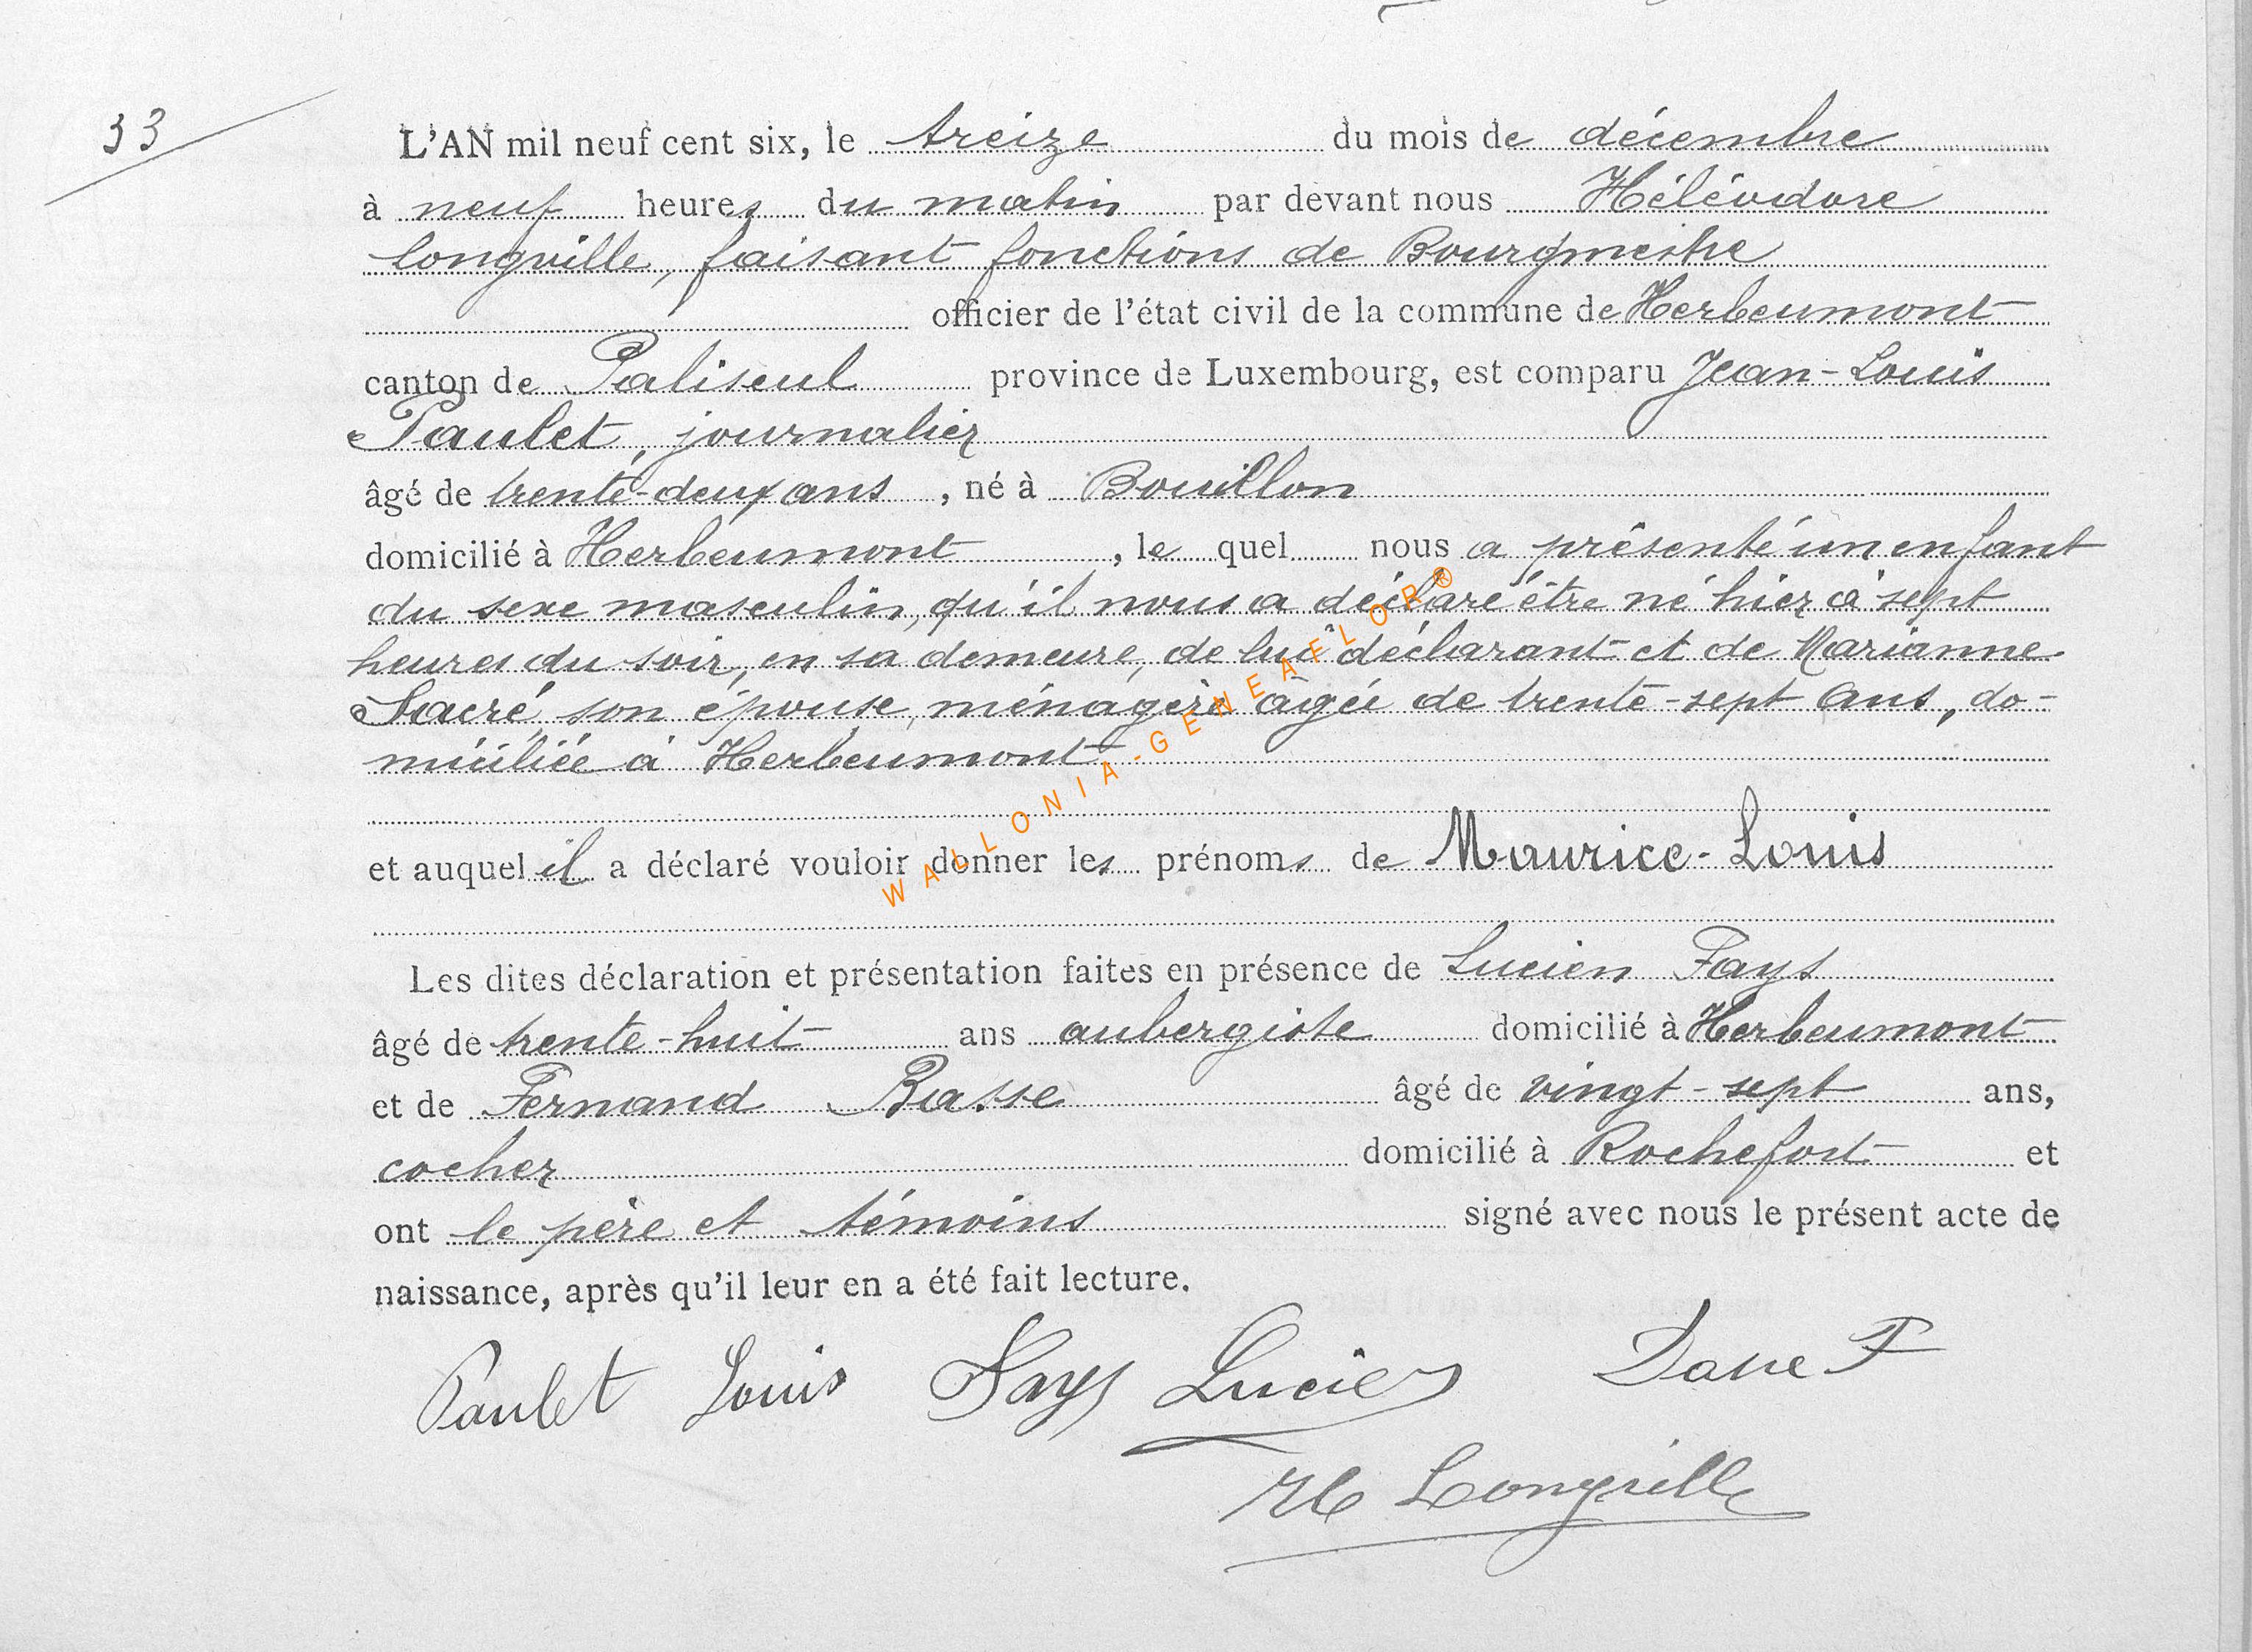 33
L'AN mil neuf cent six, le treize du mois de décembre
à neuf heures du matin par devant nous Héléodore
Longville, faisant fonctions de Bourgmestre
officier de l'état civil de la commune de Herbeumont
canton de Paliseul province de Luxembourg, est comparu Jean-Louis
Paulet, journalier
âgé de trente-deux ans, né à Bouillon
domicilié à Herbeumont, le quel nous a présenté un enfant
du sexe masculin, qu'il nous a déclaré être né hier à sept
heures du soir, en sa demeure, de lui déclarant et de Marianne
Sacré, son épouse, ménagère âgée de trente-sept ans, do-
miciliée à Herbeumont
et auquel il a déclaré vouloir donner les prénoms de Maurice-Louis
Les dites déclaration et présentation faites en présence de Lucien Fays
âgé de trente-huit ans aubergiste domicilié à Herbeumont
et de Fernand âgé de vingt-sept ans,
cocher domicilié à Rochefort et
ont le père et témoins signé avec nous le présent acte de
naissance, après qu'il leur en a été fait lecture.
Paulet Louis Fays Lucien F
H Longville
WALLONIA-GENEAELOR®